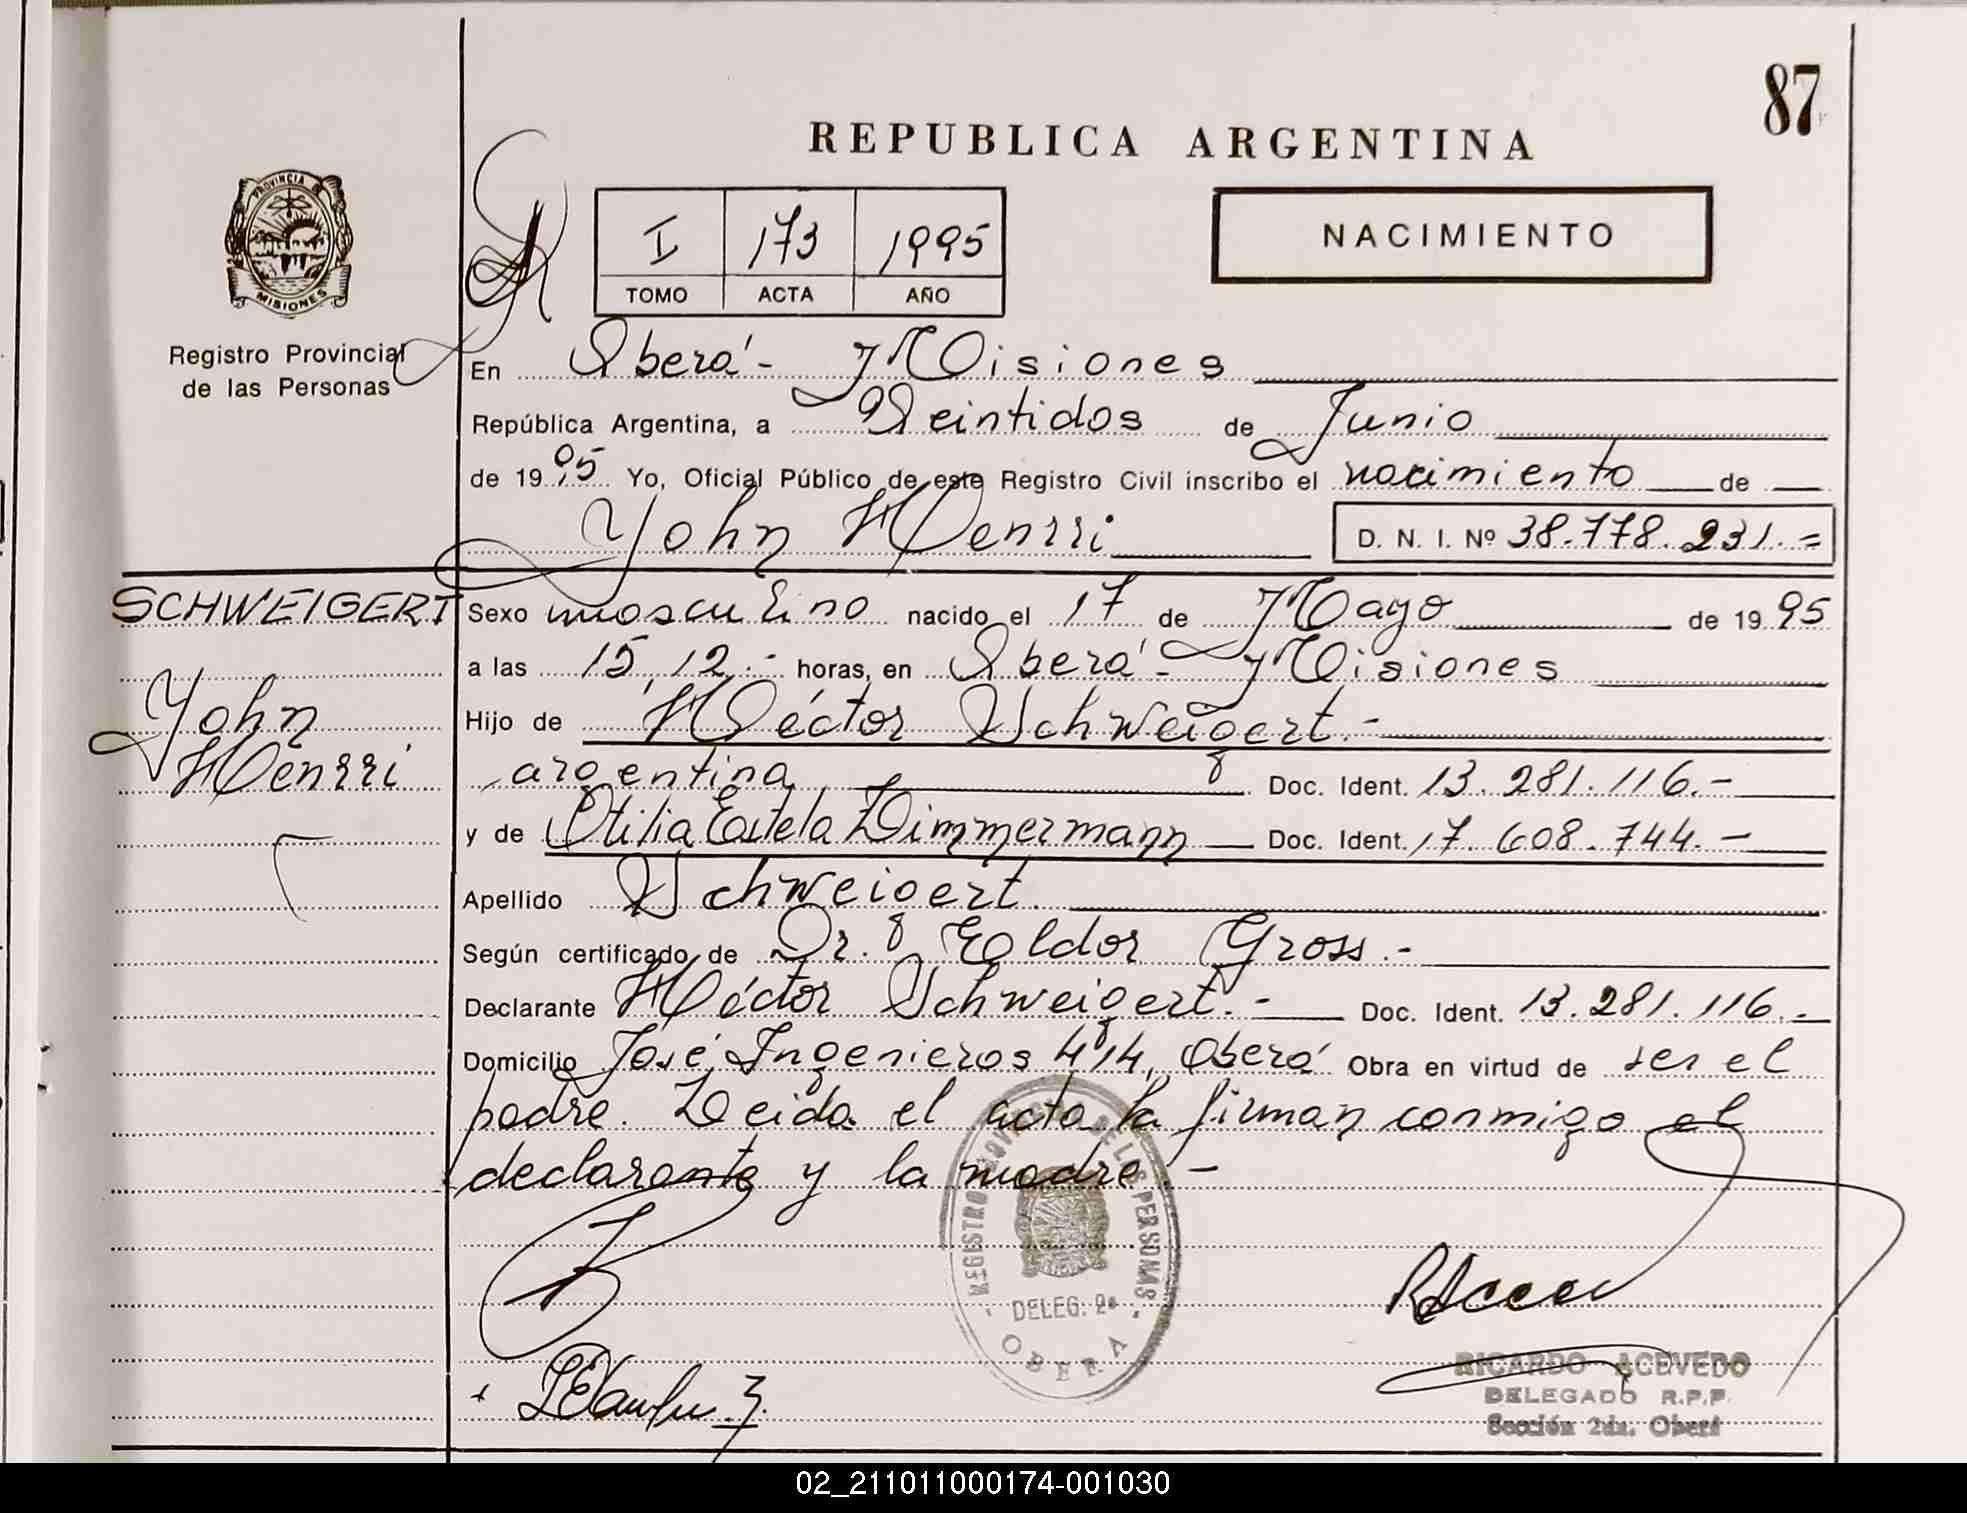 87
REPUBLICA ARGENTINA
PROVINCIA DE
MISIONES
Registro Provincial
de las Personas
I 173 1995
TOMO ACTA AÑO
NACIMIENTO
En Oberá - Misiones
República Argentina, a Veintidos de Junio
de 19 95 Yo, Oficial Público de este Registro Civil inscribo el nacimiento de
John Henrri D. N. I. Nº 38.778.231.=
SCHWEIGERT
John
Henrri
Sexo masculino nacido el 17 de Mayo de 19 95
a las 15,12.- horas, en Oberá - Misiones
Hijo de Héctor Schweigert.-
argentina Doc. Ident. 13.281.116.-
y de Otilia Estela Zimmermann Doc. Ident. 17.608.744.-
Apellido Schweigert.
Según certificado de Dr. Eldor Gross.-
Declarante Héctor Schweigert.- Doc. Ident. 13.281.116.-
Domicilio José Ingenieros 414, Oberá Obra en virtud de ser el
padre. Leida el acta la firman conmigo el
declarante y la madre.-
REGISTRO PROVINCIAL DE LAS PERSONAS
DELEG. 2a
OBERA
RICARDO ACEVEDO
DELEGADO R.P.P.
Sección 2da. Oberá
02_211011000174-001030